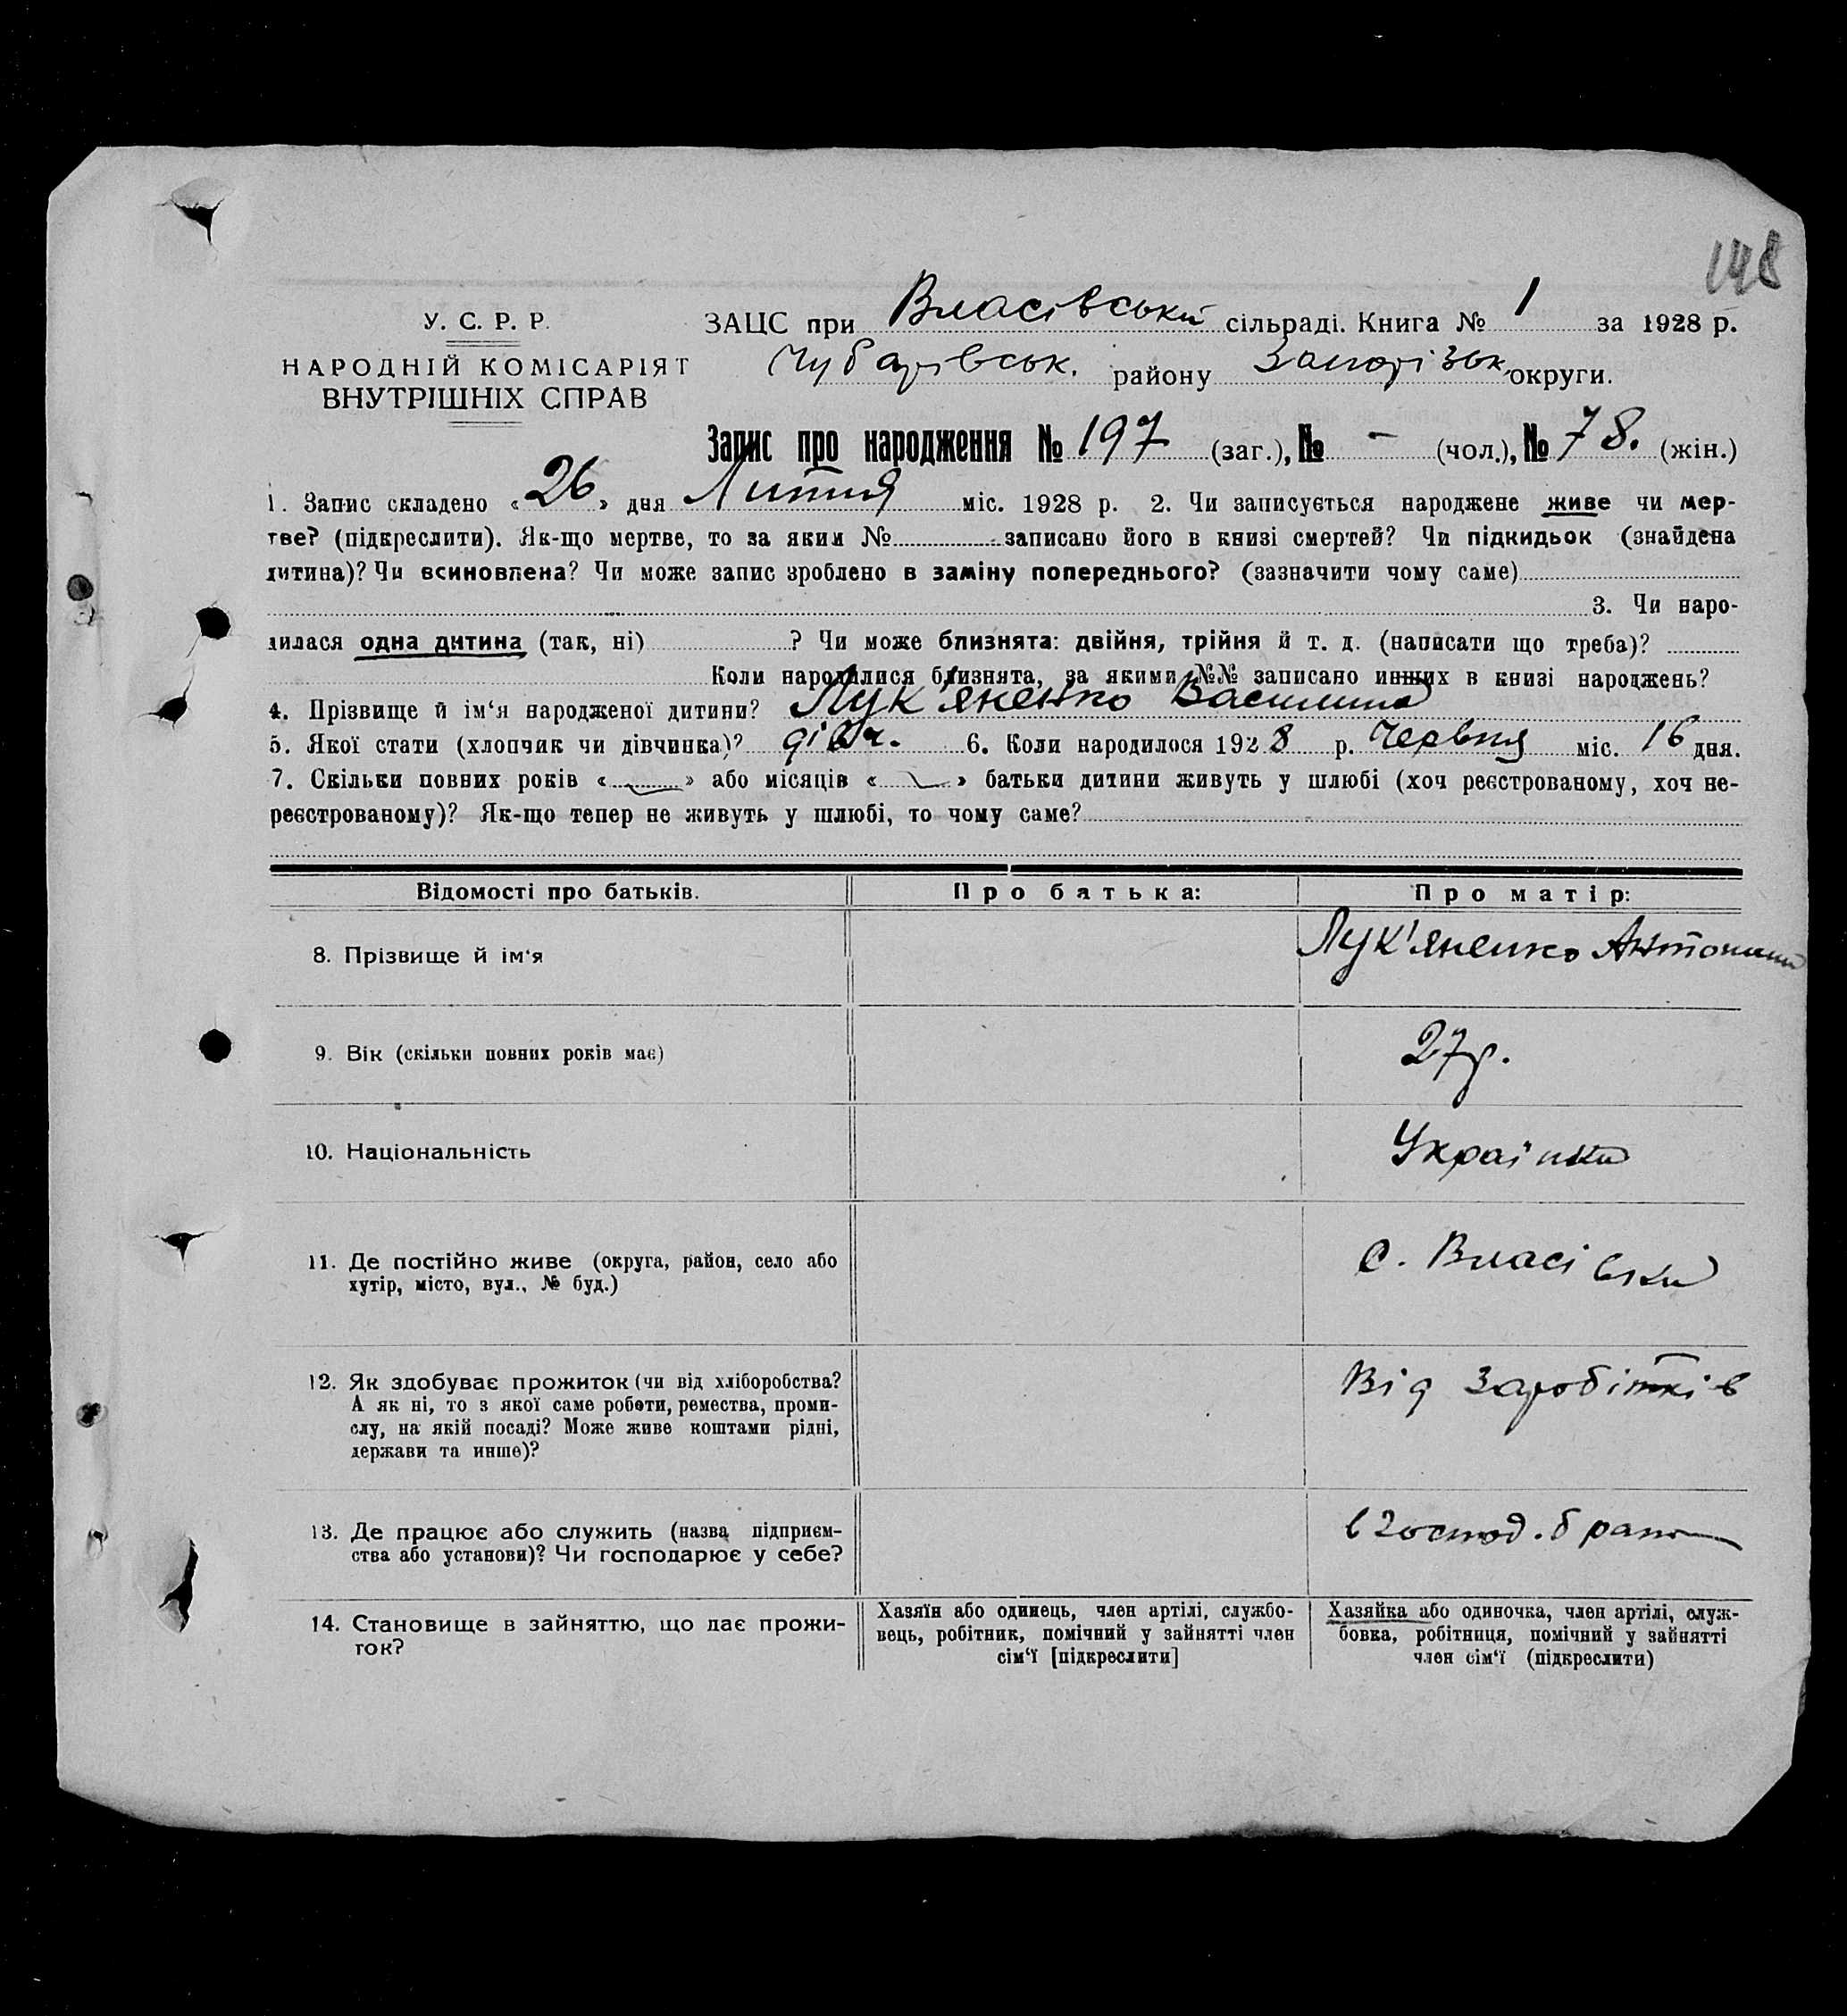 148
У. С. Р. Р.
НАРОДНІЙ КОМІСАРІЯТ
ВНУТРІШНІХ СПРАВ
ЗАЦС при Власівській сільраді. Книга № 1 за 1928 р.
Чубарівськ. району Запорізьк. округи.
Запис про народження № 197 (заг.), № - (чол.), № 78. (жін.)
1. Запис складено « 26 » дня Липня міс. 1928 р. 2. Чи записується народжене живе чи мер-
тве? (підкреслити). Як-що мертве, то за яким № записано його в книзі смертей? Чи підкидьок (знайдена
дитина)? Чи всиновлена? Чи може запис зроблено в заміну попереднього? (зазначити чому саме)
3. Чи наро-
дилася одна дитина (так, ні) ? Чи може близнята: двійня, трійня й т. д. (написати що треба)?
Коли народилися близнята, за якими №№ записано инших в книзі народжень?
4. Прізвище й ім‘я народженої дитини? Лук'яненко Василина
5. Якої стати (хлопчик чи дівчинка)? дівч. 6. Коли народилося 1928 р. Червня міс. 16 дня.
7. Скільки повних років « » або місяців « » батьки дитини живуть у шлюбі (хоч реєстрованому, хоч не-
реєстрованому)? Як-що тепер не живуть у шлюбі, то чому саме?
Відомості про батьків. Про батька: Про матір:
8. Прізвище й ім‘я Лук'яненко Антонина
9. Вік (скільки повних років має) 27 р.
10. Національність Українка
11. Де постійно живе (округа, район, село або
хутір, місто, вул., № буд.) с. Власівка
12. Як здобуває прожиток (чи від хліборобства?
А як ні, то з якої саме роботи, ремества, проми-
слу, на якій посаді? Може живе коштами рідні,
держави та инше)? Від заробітків
13. Де працює або служить (назва підприєм-
ства або установи)? Чи господарює у себе? в господ.
14. Становище в зайняттю, що дає прожи-
ток?
Хазяїн або одинець, член артілі, службо-
вець, робітник, помічний у зайнятті член
сім‘ї [підкреслити]
Хазяйка або одиночка, член артілі, служ-
бовка, робітниця, помічний у зайнятті
член сім‘ї (підкреслити)